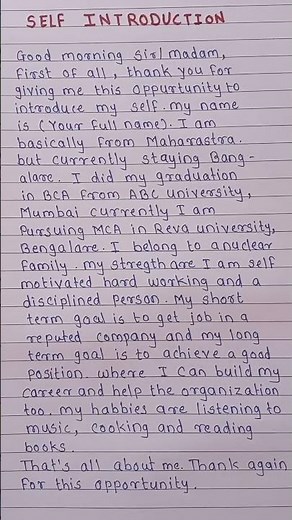 SELF INTRODUCTION
Good morning sir/madam,
first of all, thank you for
giving me this oppurtunity to
introduce my self. my name
is (Your full name). I am
basically from Maharastra.
but currently staying Bang-
alare. I did my graduation
in BCA from ABC university,
Mumbai currently I am
Pursuing MCA in Reva university,
Bengalare. I belong to anuclear
family. my stregth are I am self
motivated hard working and a
disciplined person. My short
term goal is to get job in a
reputed company and my long
term goal is to achieve a good
position. where I can build my
career and help the organization
too. my habbies are listening to
music, cooking and reading
books.
That's all about me. Thank again
for this opportunity.